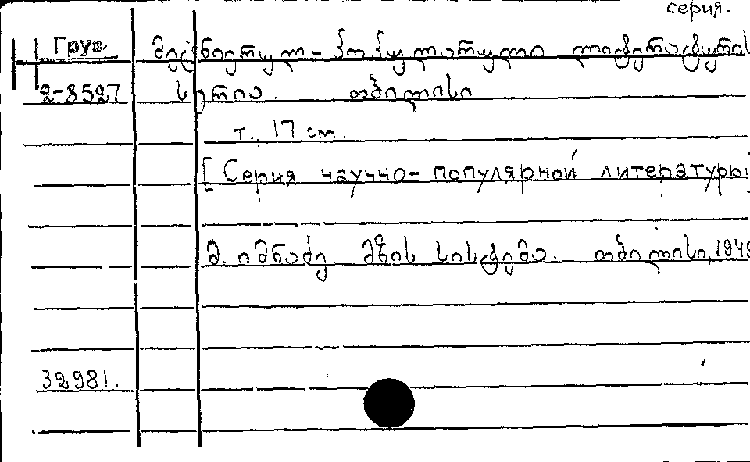 серия.
Груз. მეცნიერულ-პოპულარული ლიტერატურის
2-8527 სერია. თბილისი
т., 17 см.
[Серия научно-популярной литературы]
მ. იმნაძე მზის სისტემა. თბილისი, 1949
32981.